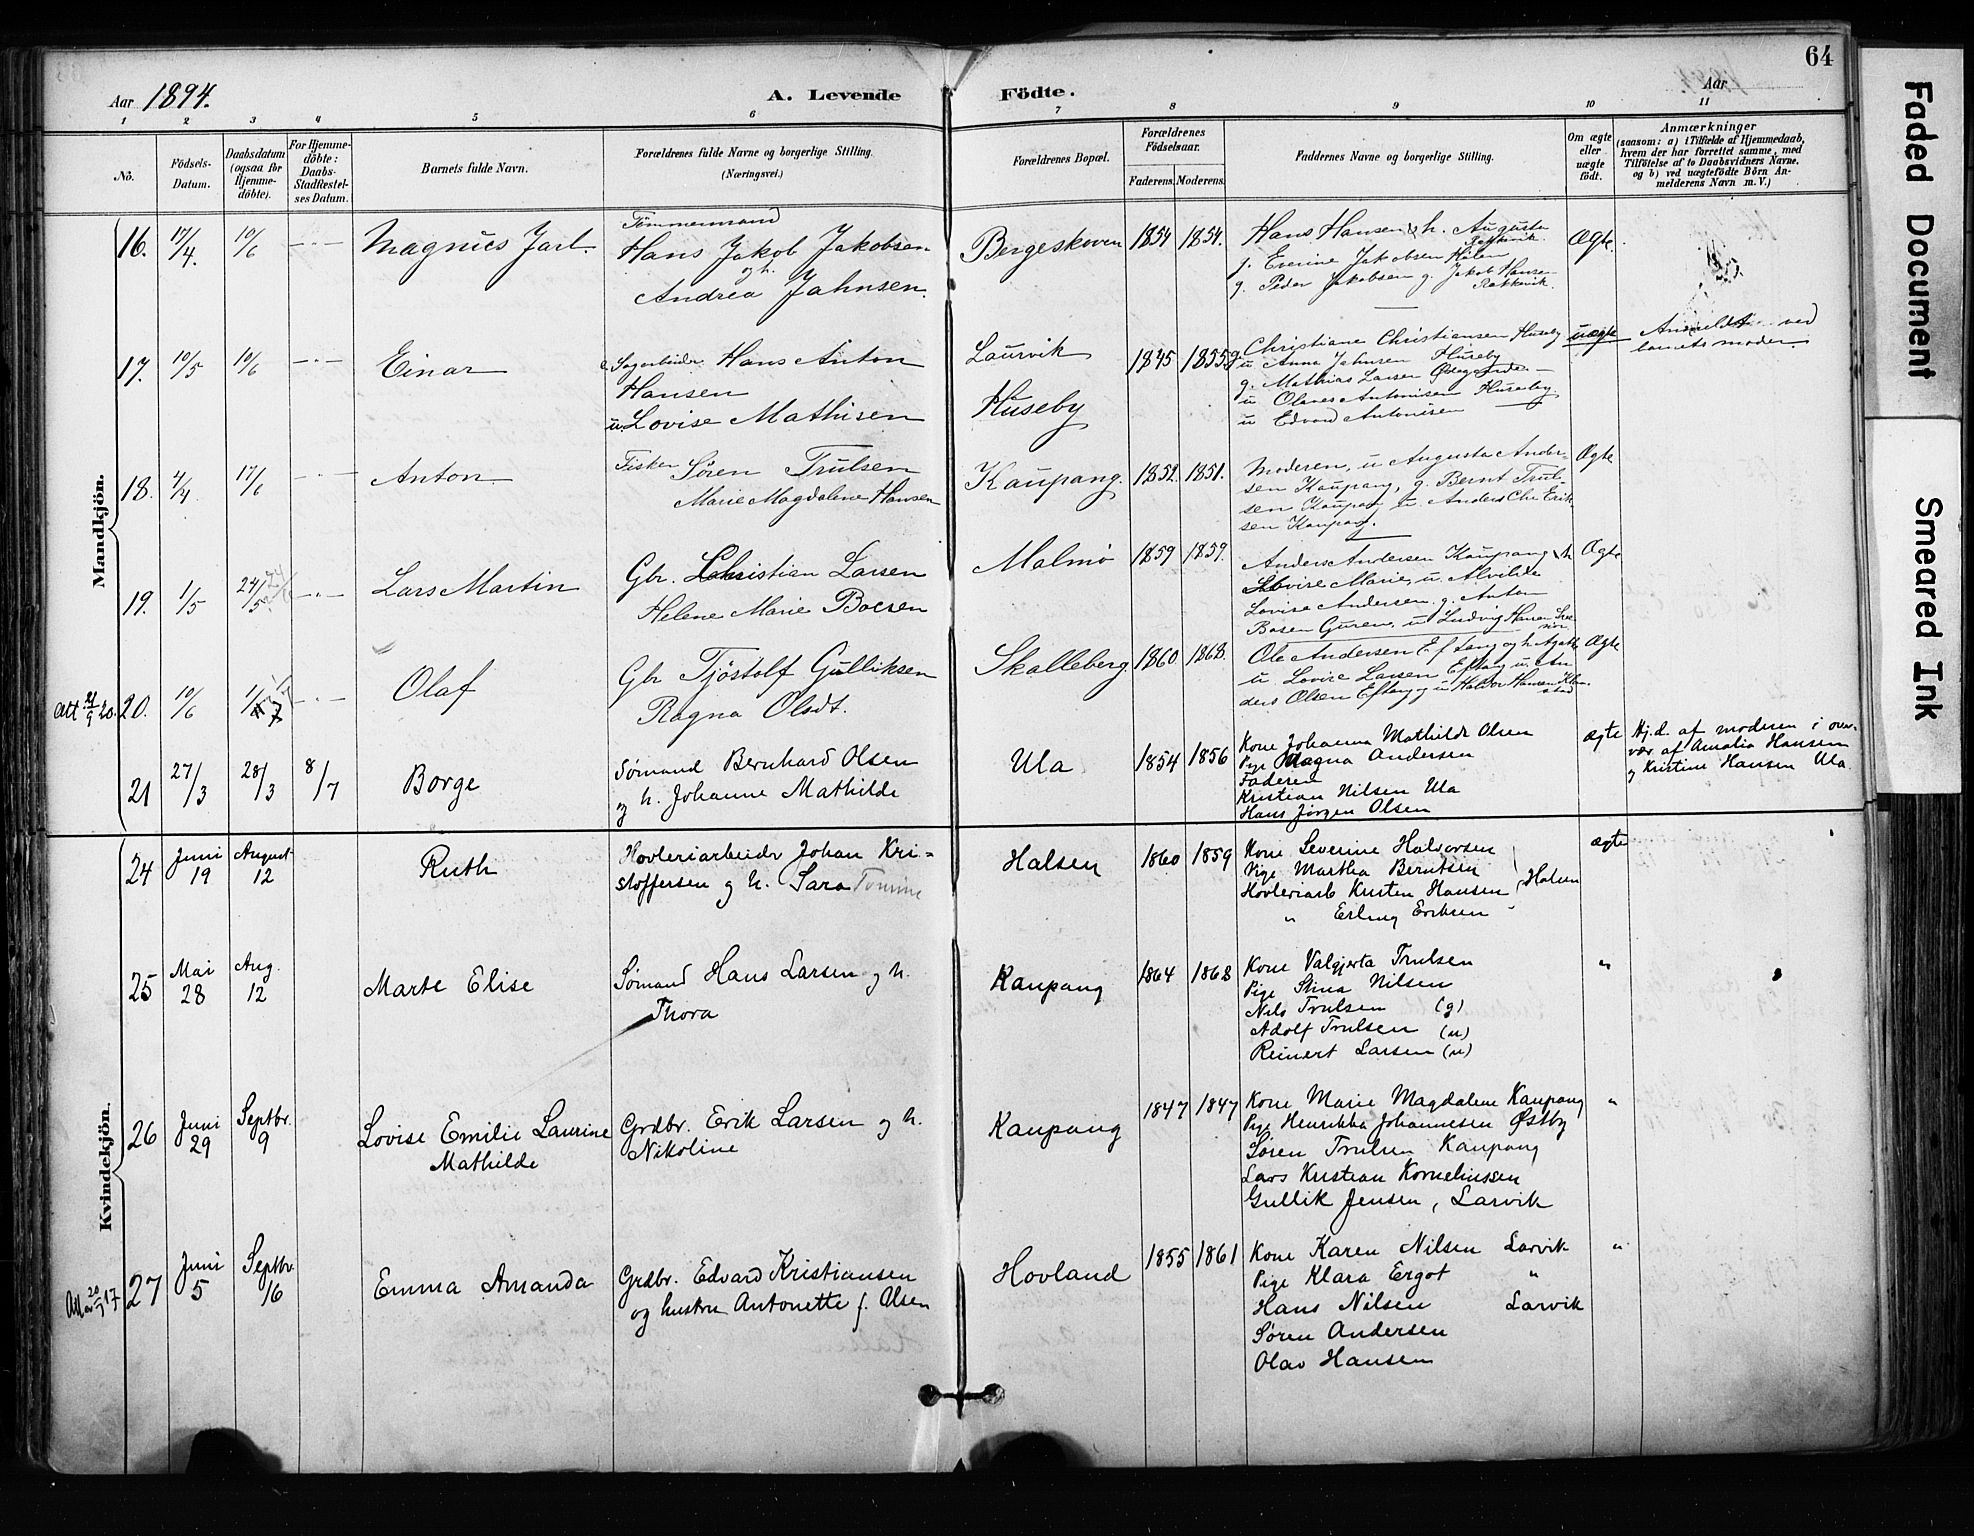 64
Aar 1894.
A. Levende Födte.
Aar
1 2 3 4 5 6 7 8 9 10 11
No.
Födsels-
Datum.
Daabsdatum
(ogsaa för
Hjemme-
döbte).
For Hjemme-
döbte:
Daabs-
Stadfestel-
ses Datum.
Barnets fulde Navn.
Forældrenes fulde Navne og borgerlige Stilling.
(Næringsvei.)
Forældrenes Bopæl.
Forældrenes
Födselsaar.
Faderens. Moderens.
Faddernes Navne og borgerlige Stilling.
Om ægte
eller
uægte
födt.
Anmærkninger
(saasom: a) i Tilfælde af Hjemmedaab,
hvem der har forrettet samme, med
Tilföielse af to Daabsvidners Navne.
og b) ved uægtefödte Börn An-
melderens Navn m. V.)
Mandkjön.
16. 17/4. 10/6 Magnus Jarl.
Tömmermand
Hans Jakob Jakobsen
og h.
Andrea Jahnsen.
Bergeskoven 1854 1854.
Hans Hansen & h. Augusta
Rekkevik.
j. Everine Jakobsen Hålen
g. Peder Jakobsen g. Jakob Hansen
Rekkevik.
Ægte.
17. 10/5 10/6 Einar
Hans Anton
Hansen
u. Lovise Mathisen
Laurvik
Huseby
1845 1855
Christiane Christiansen Huseby
u Anna Jahnsen Huseby
g. Mathias Larsen
u Olaves Antonisen Huseby
u Edvard Antonisen
uægte
Anmeldt ved
barnets moder
18. 4/4. 17/6 Anton
Fisker Sören Trulsen
Marie Magdalene Hansen
Kaupang. 1852. 1851.
Moderen, u Augusta Ander-
sen Kaupang, g. Bernt Trul-
sen Kaupang u. Anders Chr Erik-
sen Kaupang.
Ægte
19. 1/5 24/5 Lars Martin
Gbr. Christian Larsen
Helene Marie Boesen
Malmö 1859 1859.
Anders Andersen Kaupang & h
Lovise Marie, u. Alvilde
Lovise Andersen. g. Anton
Bosen Guren, u Ludvig Hansen
Ægte
20. 10/6 Olaf
Gbr Tjöstolf Gulliksen
Ragna Olsdt.
Skalleberg. 1860. 1868.
Ole Andersen Eftang og h. Agathe
u Lovise Larsen Eftang u. An
ders Olsen Eftang g u Haldor Hansen
Ægte
21 27/3 28/3 8/7 Borge
Sømand Bernhard Olsen
og h. Johanne Mathilde
Ula 1854 1856
Kone Johanna Mathilde Olsen
Pige Magna Andersen
Faderen
Kristian Nilsen Ula
Hans Jørgen Olsen
ægte
Hj.d. af moderen i over-
vær af Amalia Hansen
og Kristine Hansen Ula.
Kvindekjön.
24 Juni 19 August 12 Ruth
Hovleriarbeider Johan Kri-
stoffersen og h. Sara
Halsen 1860 1859
Kone Severine Halvorsen
Pige Martha Berntsen
Hovleriarb Kristen Hansen
" Erling Eriksen
Halsen
ægte
25 Mai 28 Aug. 12 Marte Elise
Sømand Hans Larsen og h.
Thora
Kaupang 1864 1868
Kone Valgjerta Trulsen
Pige Stina Nilsen
Nils Trulsen (g)
Adolf Trulsen (u)
Reinert Larsen (u)
"
26 Juni 29 Septbr. 9 Lovise Emilie Laurine
Mathilde
Grdbr. Erik Larsen og h.
Nikoline
Kaupang 1847 1847
Kone Marie Magdalene Kaupang
Pige Henrikka Johannesen Østby
Søren Trulsen Kaupang
Lars Kristian Korneliussen
Gullik Jensen, Larvik
"
27 Juni 5 Septbr 16 Emma Amanda
Grdbr. Edvard Kristiansen
og hustru Antonette f. Olsen
Hovland 1855 1861
Kone Karen Nilsen Larvik
Pige Klara Ergot "
Hans Nilsen Larvik
Søren Andersen
Olav Hansen
"
Faded Document
Smeared Ink